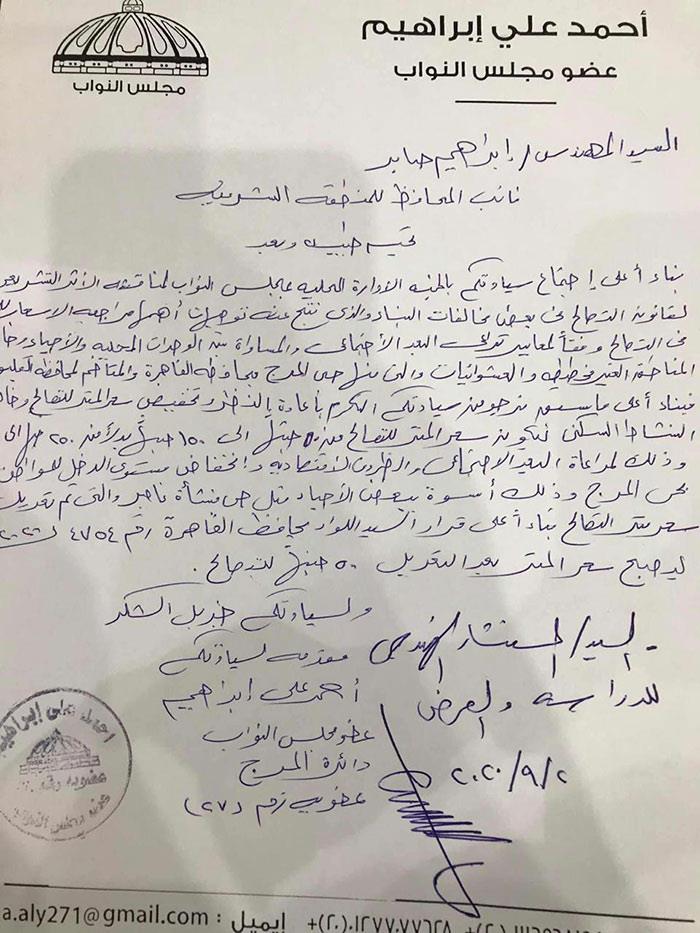 أحمد علي إبراهيم
عضو مجلس النواب
مجلس النواب
السيد المهندس/ إبراهيم صابر
نائب المحافظ للمنطقة الشرقية
تحية طيبة وبعد
بناء أعلى إجتماع سيادتكم بالجنة الإدارة المحلية بمجلس النواب لمناقشة الأثر التشريعى
لقانون التصالح فى بعض مخالفات البناء والذى نتج عنه توصيات أهمها مراجعة الاسعار
فى التصالح وفقاً لمعايير تراعى البعد الاجتماعى والمساواة بين الوحدات المحلية والأحياء
المناطق الغير مخططة والعشوائيات والتى مثل حى المرج بمحافظة القاهرة والمتاخم لمحافظة
فبناد أعلى ما سبق نرجو من سيادتكم التكرم بأعادة النظر وتخفيض سعر المتر للتصالح
النشاط السكنى ليكون سعر المتر للتصالح من ٥٠ جنيهاً الى ١٥٠ جنيهاً بدلاً من ٢٥٠ جنيه الى
وذلك لمراعاة البعد الاجتماعى والظروف الاقتصادية وانخفاض مستوى الدخل للمواطن
بحى المرج وذلك أسوة ببعض الأحياء مثل حى منشأة ناصر والتى تم تعديل
سعر متر التصالح بناء أعلى قرار السيد اللواء محافظ القاهرة رقم ٤٧٥٤ ل ٢٠٢٠
ليصبح سعر المتر بعد التعديل ٥٠ جنيهاً للتصالح.
ولسيادتكم جزيل الشكر
السيد/ المستشار الهندسى
مقدمه لسيادتكم
للدراسة والعرض
أحمد على إبراهيم
عضو مجلس النواب
دائرة المرج
عضوية رقم (٢٧)
٢٠٢٠/٩/٢
احمد على إبراهيم
عضوية رقم
عضو مجلس النواب
a.aly271@gmail.com : إيميل